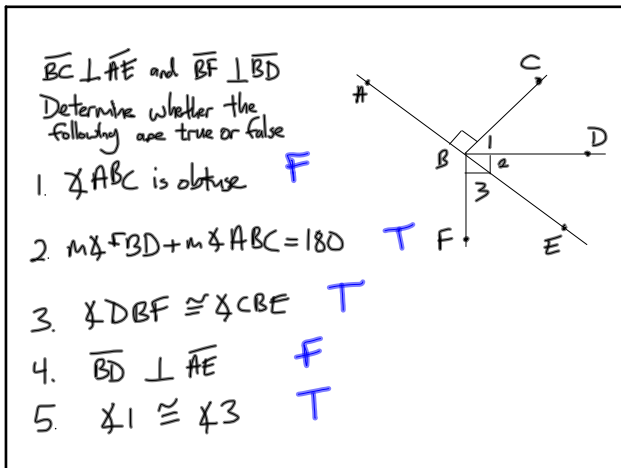 BC ⊥ AE and BF ⊥ BD
Determine whether the
following are true or false
1. ∡ABC is obtuse F
2. m∡FBD + m∡ABC = 180 T
3. ∡DBF ≅ ∡CBE T
4. BD ⊥ AE F
5. ∡1 ≅ ∡3 T
A
C
B
1
D
2
3
F
E